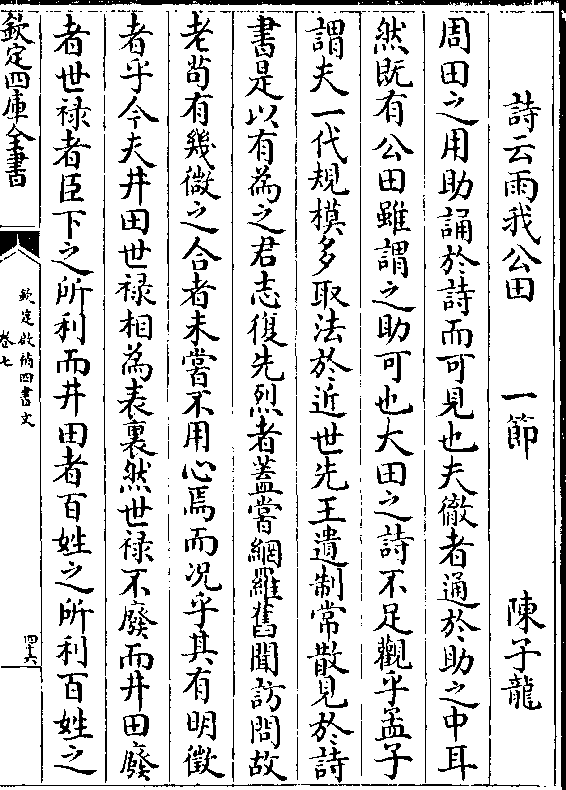 詩云雨我公田　一節　陳子龍
周田之用助誦於詩而可見也夫徹者通於助之中耳
然既有公田雖謂之助可也大田之詩不足觀乎孟子
謂夫一代規模多取法於近世先王遺制常散見於詩
書是以有為之君志復先烈者蓋嘗網羅舊聞訪問故
老苟有幾微之合者未嘗不用心焉而况乎其有明徵
者乎今夫井田世禄相為表裏然世禄不廢而井田廢
者世禄者臣下之所利而井田者百姓之所利百姓之
欽定四庫全書
欽定啟禎四書文
卷七
四十六